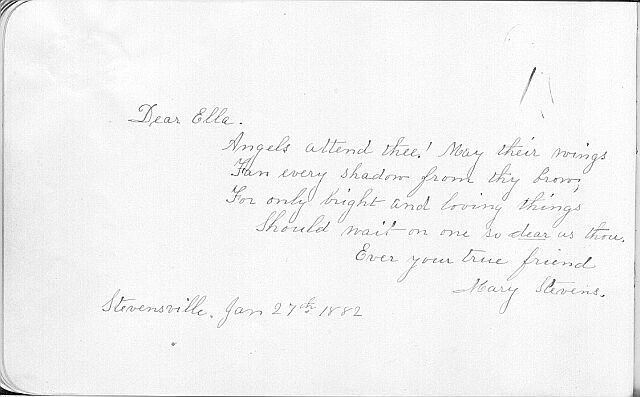 Dear Ella.
Angels attend thee! May their wings
Fan every shadow from thy brow;
For only bright and loving things
Should wait on one so dear as thou.
Ever your true friend
Mary Stevens.
Stevensville. Jan 27th 1882